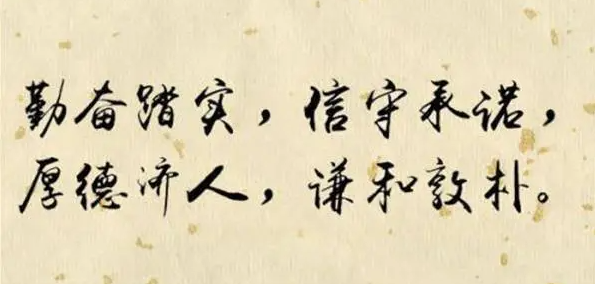 勤奋踏实，信守承诺，
厚德济人，谦和敦朴。